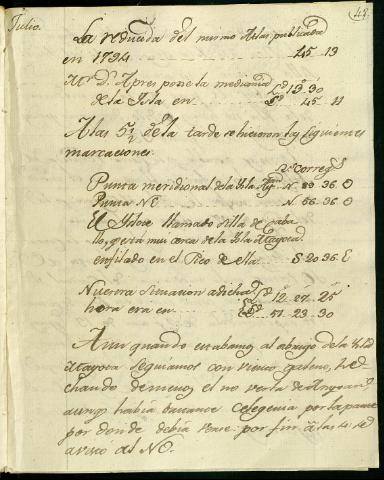 Julio.
43.
La reducida del mismo Atlas publicada
en 1794 45 19
Mr. D. Apres pone la medianía Ln 19 30
de la Isla en So 45 11
A las 5 1/2 de la tarde se hicieron las siguientes
marcaciones
Rs. Correg.s
Punta meridional de la Isla N. 89. 36. O
Punta NE N. 56. 36. O
El Islote llamado Silla de Caba
llo, que está muy cerca de la Isla Atayoca
enfilado en el Pico de ella S 20. 36. E
Nuestra Situacion a dicha 12. 27. 25
hora era en 51. 23. 30
Aun quando estabamos al abrigo de la Isla
Atayoca seguiamos con viento galeno, he-
chando de menos el no ver la de
aunq.e habia bastante Celegenia por la parte
por donde debia verse: por fin á las 4 1/2 se
aviso al NO.